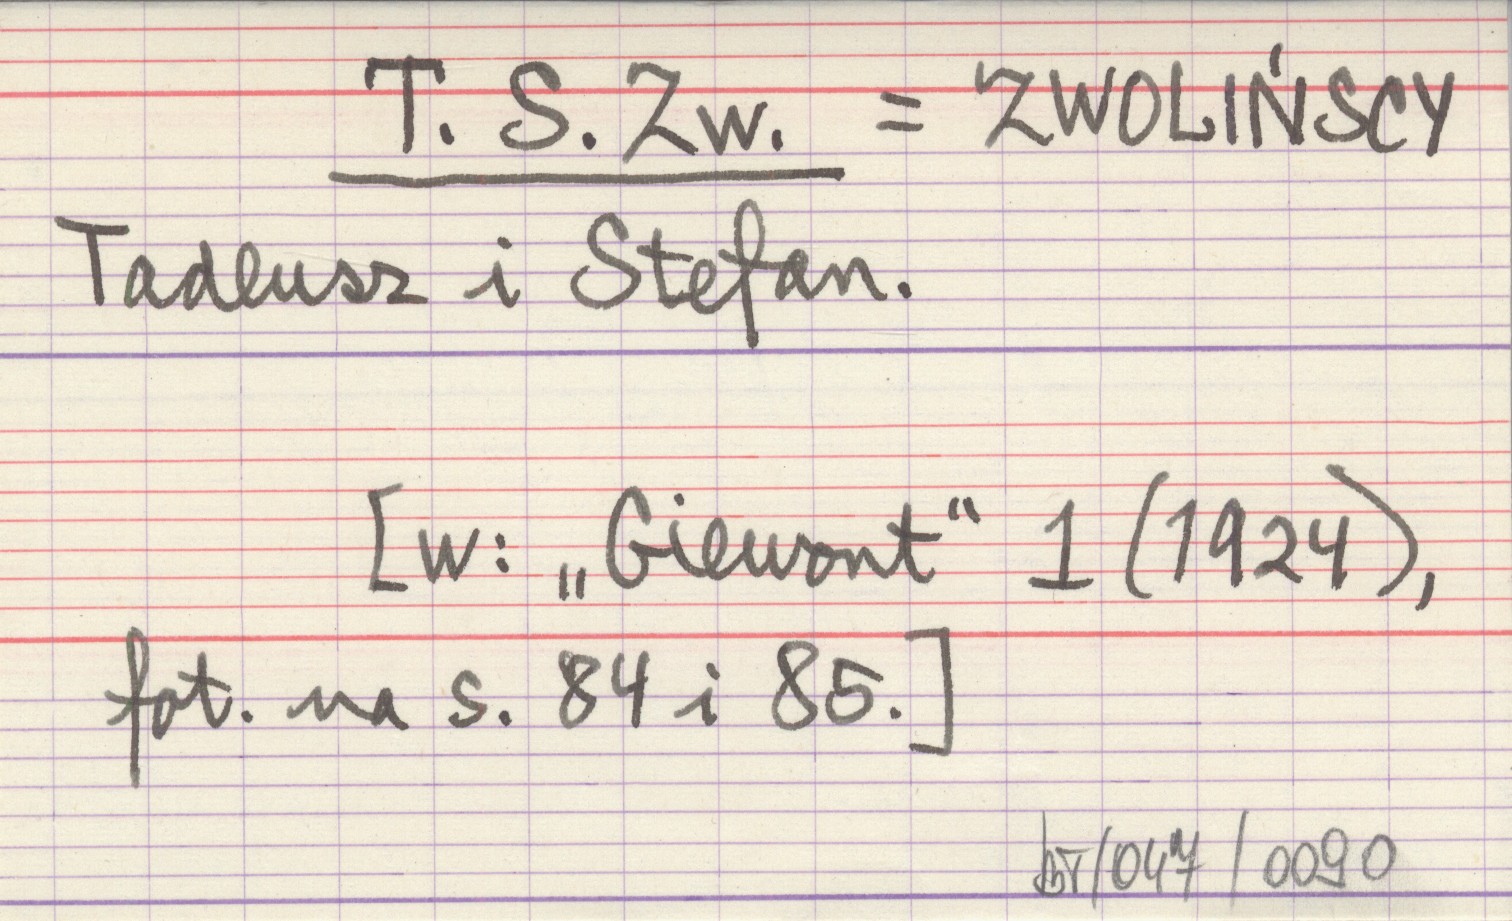 T. S. Zw. = ZWOLIŃSCY
Tadeusz i Stefan.
[w: „Giewont“ 1 (1924),
fot. na s. 84 i 85.]
/047 / 0090